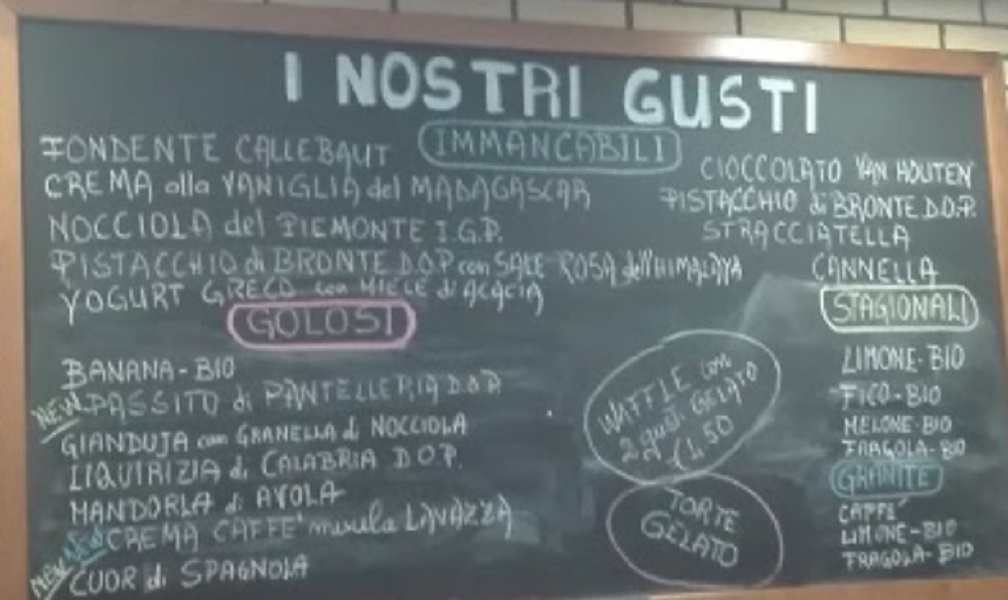 I NOSTRI GUSTI
IMMANCABILI
FONDENTE CALLEBAUT
CREMA alla VANIGLIA del MADAGASCAR
NOCCIOLA del PIEMONTE I.G.P.
PISTACCHIO di BRONTE D.O.P con SALE ROSA dell'HIMALAYA
YOGURT GRECO con MIELE di ACACIA
CIOCCOLATO VAN HOUTEN
PISTACCHIO di BRONTE D.O.P.
STRACCIATELLA
CANNELLA
GOLOSI
BANANA-BIO
NEW PASSITO di PANTELLERIA D.O.P
GIANDUJA con GRANELLA di NOCCIOLA
LIQUIRIZIA di CALABRIA D.O.P.
MANDORLA di AVOLA
NEW CREMA CAFFE' miscela LAVAZZA
NEW CUOR di SPAGNOLA
WAFFLE con
2 gusti GELATO
€1.50
TORTE
GELATO
STAGIONALI
LIMONE-BIO
FICO-BIO
MELONE-BIO
FRAGOLA-BIO
GRANITE
CAFFE'
LIMONE-BIO
FRAGOLA-BIO